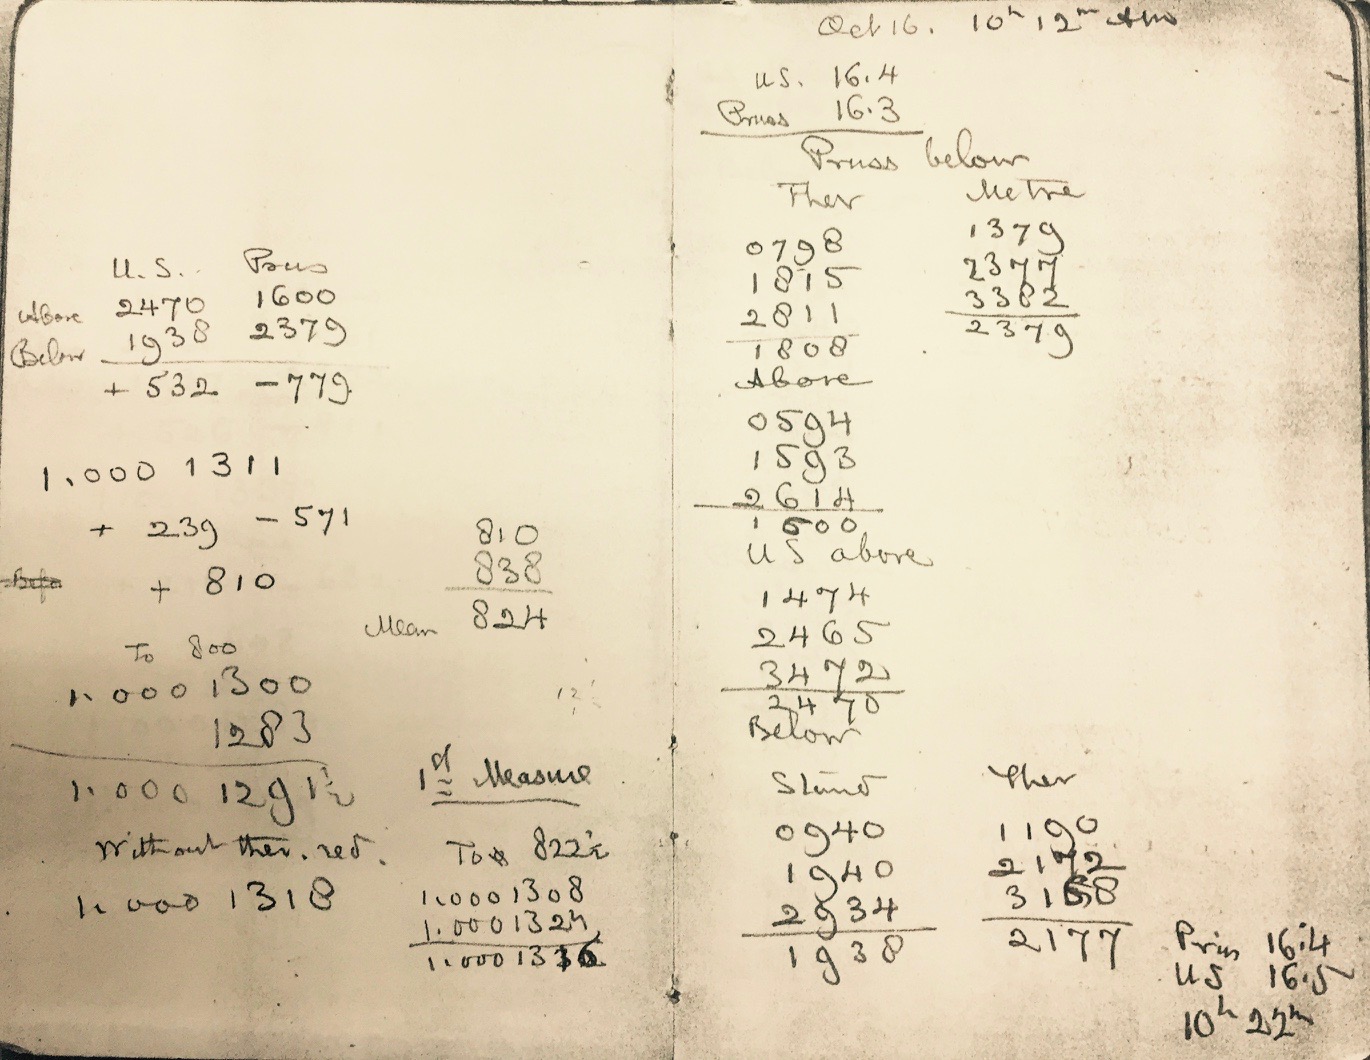 U.S. Prus
Above 2470 1600
Below 1938 2379
+ 532 -779
1.000 1311
+ 239 -571
+ 810
810
838
Mean 824
To 800
1.000 1300
1283
1.000 1291½
Without ther. red.
1.000 1318
1st Measure
To 822½
1.000 1308
1.000 1324
1.000 1316
Oct 16. 10h 12m AM
U.S. 16.4
Pruss 16.3
Pruss below
Ther Metre
0798 1379
1815 2377
2811 3382
1808 2379
Above
0594
1593
2614
1600
US above
1474
2465
3472
2470
Below
Stand Ther
0940 1190
1940 2172
2934 3168
1938 2177
Prus 16.4
US 16.5
10h 22m